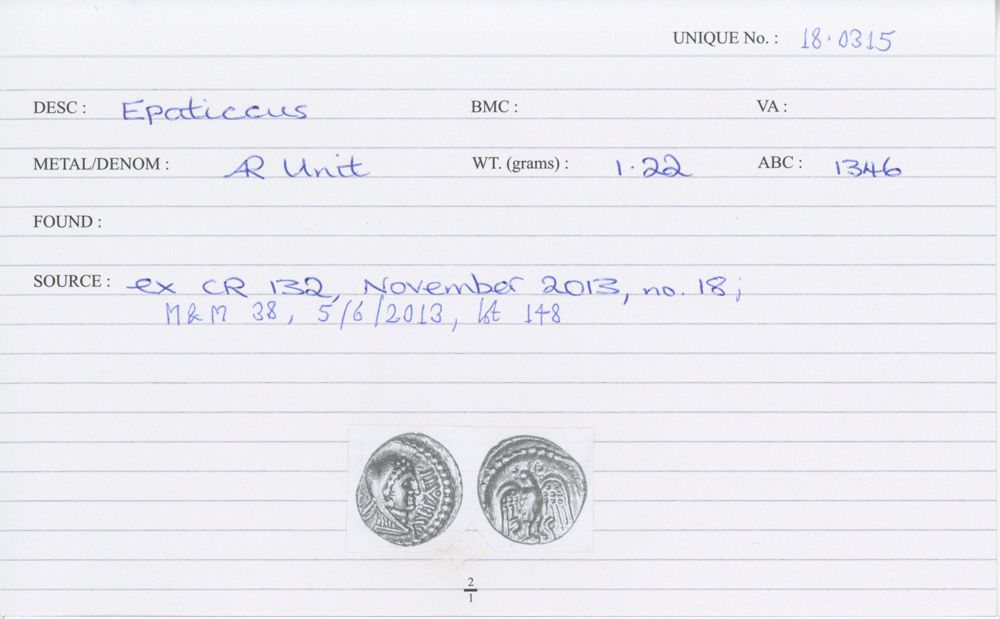 UNIQUE No. : 18.0315
DESC : Epaticcus BMC : VA :
METAL/DENOM : AR Unit WT. (grams) : 1.22 ABC : 1346
FOUND :
SOURCE : ex CR 132, November 2013, no. 18;
M&M 38, 5/6/2013, lot 148
2
1